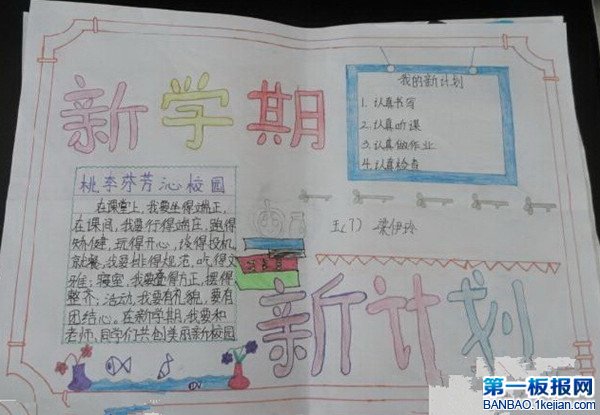 新学期
我的新计划
1. 认真书写
2. 认真听课
3. 认真做作业
4. 认真检查
桃李芬芳沁校园
在课堂上,我要坐得端正,
在课间,我要行得端庄,跑得
矫健,玩得开心,谈得投机,
就餐,我要排得规范,吃得文
雅;寝室,我要叠得方正,摆得
整齐;活动,我要有礼貌,要有
团结心。在新学期,我要和
老师、同学们共创美丽新校园
五(7) 梁伊玲
新计划
第一板报网
BANBAO.1kejian.com